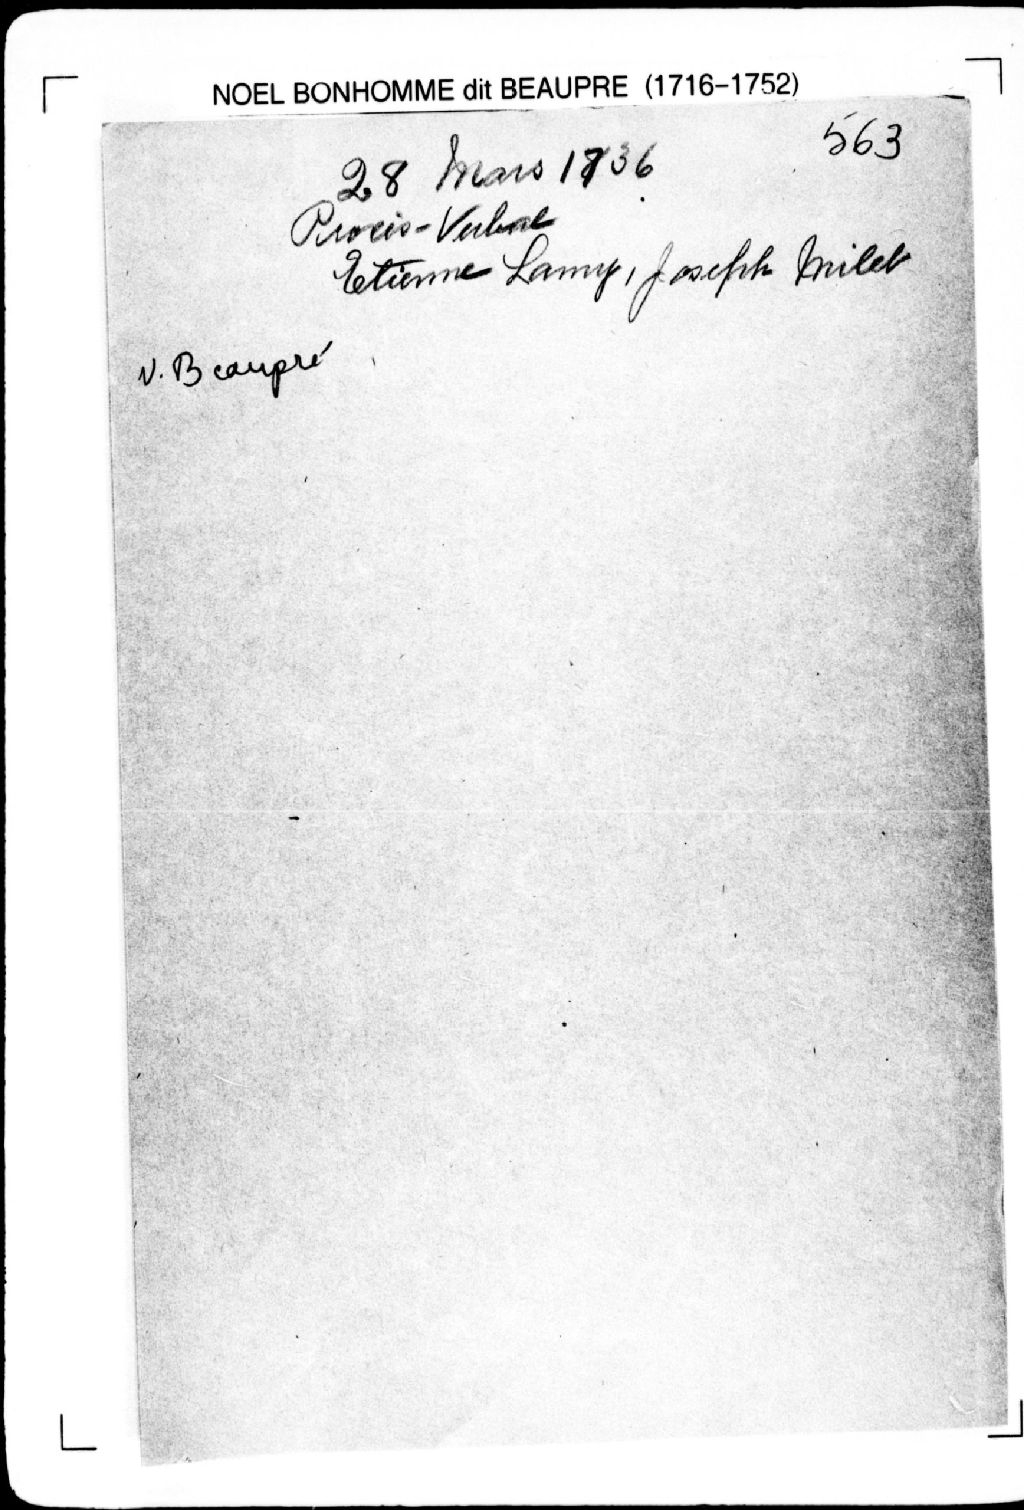 NOEL BONHOMME dit BEAUPRE (1716-1752)
563
28 Mars 1736
Procès-Verbal
Etienne Lamy, Joseph Milet
N. Beaupré